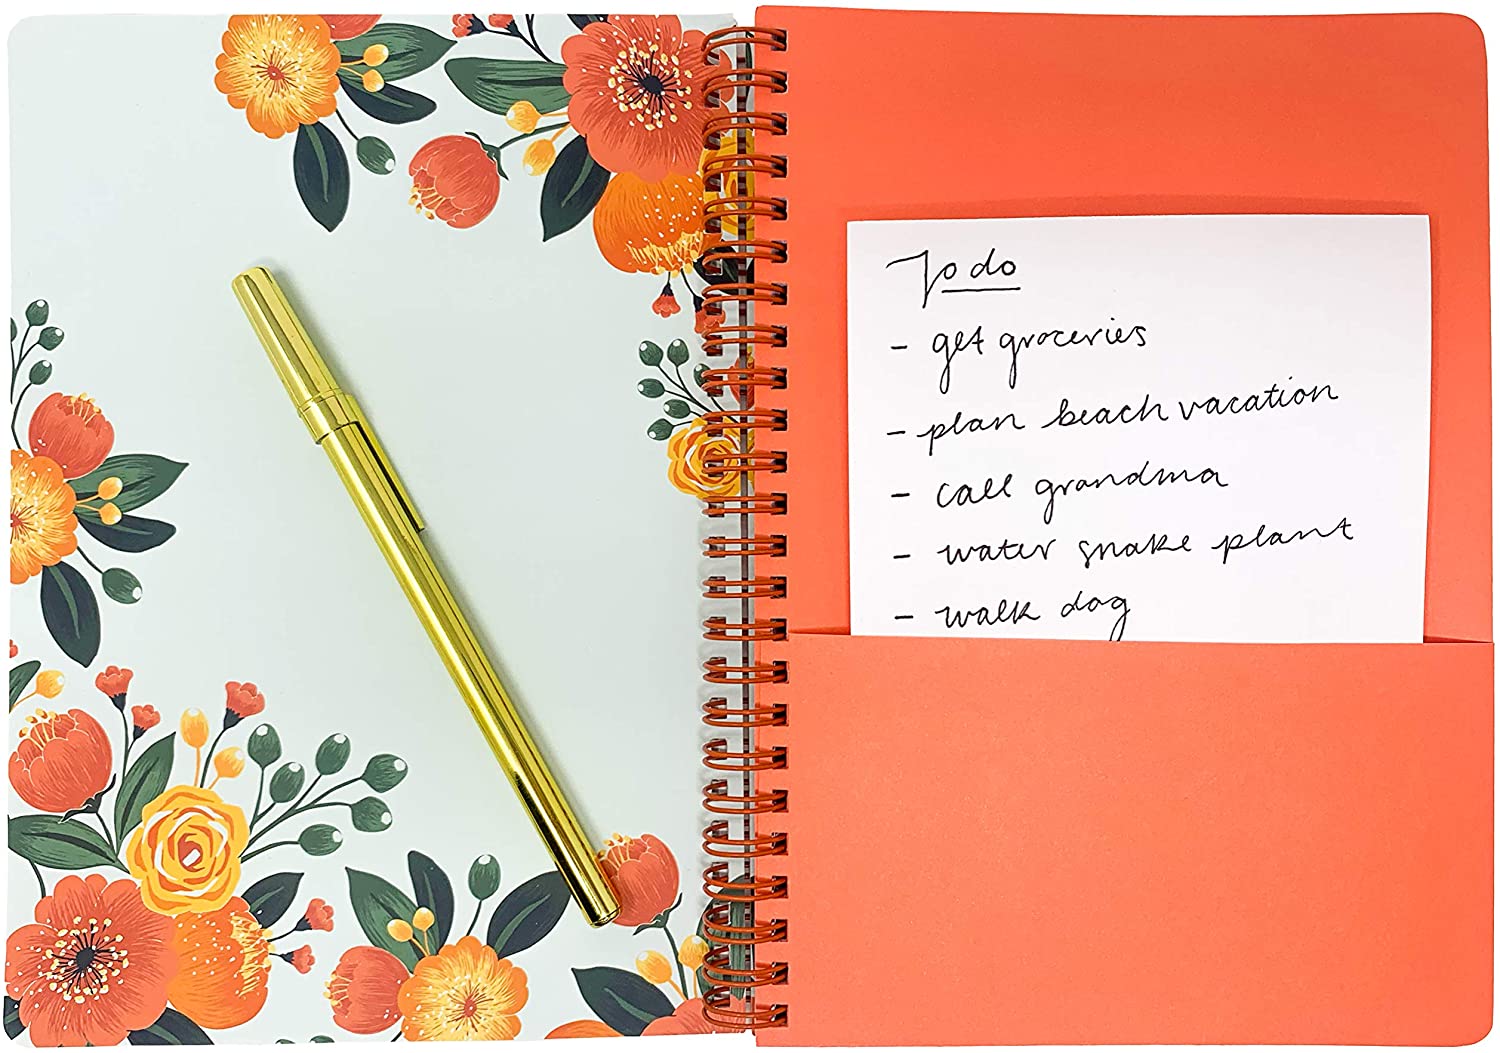 To do
- get groceries
- plan beach vacation
- call grandma
- water snake plant
- walk dog